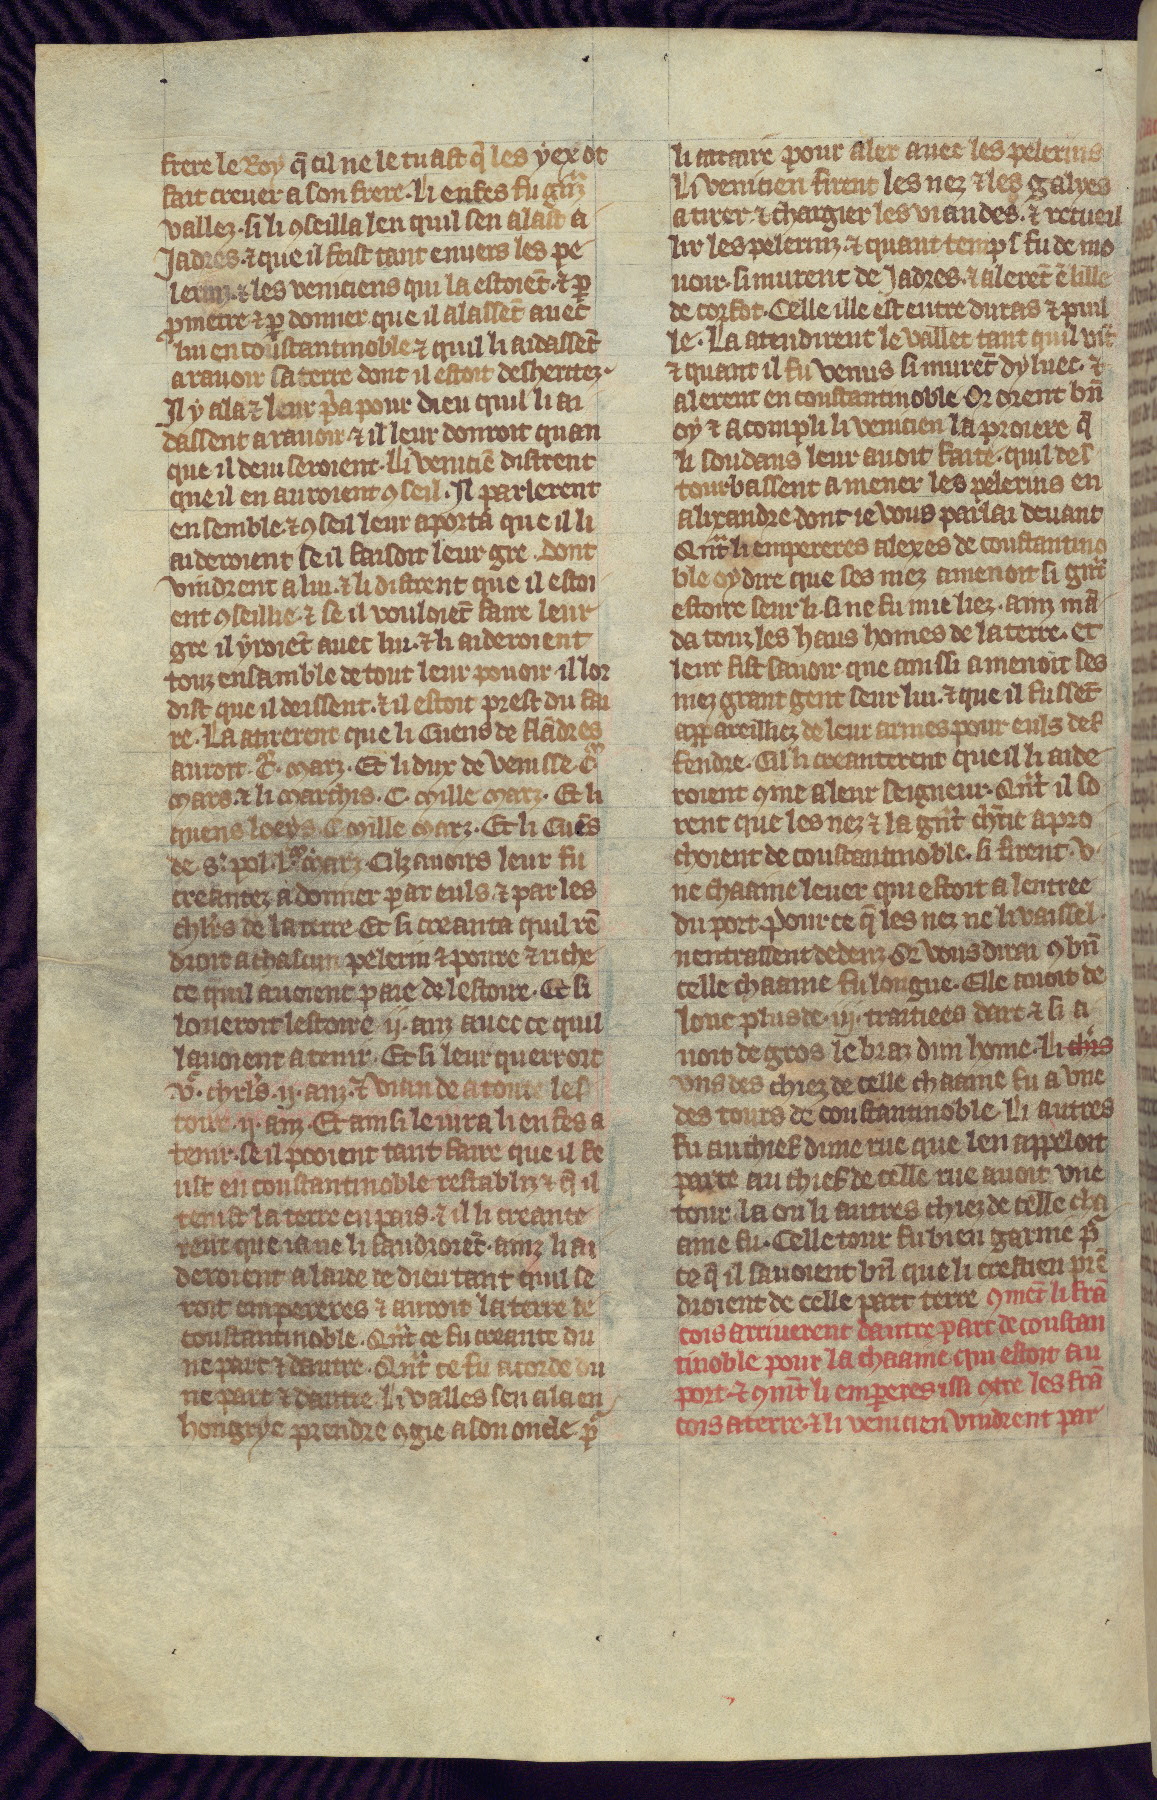 frere le Roy q̄ cil ne le tuast q̄ les yex ot
fait creuer a son frere. Li enfes fu gñz
vallez. si li ꝯseilla len quil sen alast a
Jadres. ⁊ que il feist tant enuers les pe
lerinz. ⁊ les veniciens qui la estoiēt. ⁊ ꝑ
ꝓmetre ⁊ ꝑ donner que il alassēt auec
lui en coustantinoble ⁊ quil li aidassēt
a rauoir sa terre dont il estoit desheritez.
Il y ala ⁊ leur p̄a pour dieu quil li ai
dassent a rauoir. ⁊ il leur donroit quan
que il deuiseroient. Li veniciē distrent
que il en auroient ꝯseil. Il parlerent
ensemble. ⁊ ꝯseil leur aporta que il li
aideroient se il faisoit leur gre. dont
vindrent a lui. ⁊ li distrent que il estoi
ent ꝯseillie. ⁊ se il vouloiēt faire leur
gre il yroiēt auec lui. ⁊ li aideroient
touz ensamble de tout leur pouoir. il lor
dist que il deissent. ⁊ il estoit prest du fai
re. La atirerent que li Cuens de flādres
auroit .C̃. marz. Et li dux de venisse .Cᵐ
mars. ⁊ li marchis. C. mille marz. Et li
quens loeys. C mille marz. Et li Cuēs
de s'. pol. lᵐ marz. Cilz auoirs leur fu
creantez a donner par euls. ⁊ par les
chl'rs de la terre Et si creanta quil rē
droit a chascun pelerin ⁊ poure ⁊ riche
ce quil auoient paie de lestoire. Et si
loueroit lestoire .ij. anz auec ce quil
lauoient a tenir. Et si leur querroit
vᶜ. chrl's .ij. anz. ⁊ viande a toute les
toire .ij. anz. Et ainsi le iura li enfes a
tenir. se il pooient tant faire que il fe
ust en coustantinoble restabliz ⁊ q̄ il
tenist la terre en pais. ⁊ il li creante
rent que ia ne li faudroiēt. ainz li ai
deroient a laide de dieu tant quil se
roit empereres ⁊ auroit la terre de
coustantinoble. Qñt ce fu creante du
ne part ⁊ dautre. Qñt ce fu acorde du
ne part ⁊ dautre. Li valles sen ala en
hongrye prendre ꝯgie a son oncle. ꝑ
li atirire pour aler auec les pelerins
Li venicien firent les nez ⁊ les galyes
atirer ⁊ chargier les viandes. ⁊ recueil
lir les pelerinz. ⁊ quant temps fu de mo
uoir. si murent de Jadres. ⁊ alerēt ē lille
de corfot. Celle ille est entre duras ⁊ puil
le. La atendirent le vallet tant quil vīt
⁊ quant il fu venus si murēt dyluec. ⁊
alerent en coustantinoble Or orent bn̄
oy ⁊ acompli li venicien la proiere q̄
li soudans leur auoit faite. quil des
tourbassent a mener les pelerins en
alixandre dont ie vous parlai deuant
Qñt li empereres alexes de coustantino
ble oy dire que ses niez amenoit si gñt
estoire seur li. si ne fu mie liez. ainz mā
da touz les haus homes de la terre. et
leur fist sauoir que ainssi amenoit ses
niez grant gent seur lui. ⁊ que il fussēt
appareilliez de leur armes pour euls def
fendre. Cil li creanterent que il li aide
roient ꝯme a leur seigneur. Qñt il so
rent que les nez ⁊ la gñt chr̄tie apro
choient de coustantinoble. si firent .v.
ne chaaine leuer qui estoit a lentree
du port. pour ce q̄ les nez ne li vaissel.
nentrassent dedenz. Or vous dirai ꝯ bn̄
celle chaaine fu longue. Elle auoit de
lonc plus de .iij. traitiees darc ⁊ si a
uoit de gros le braz dun home. Li chr̄s
vns des chiez de celle chaaine fu a vne
des tours de coustantinoble. Li autres
fu au chief dune rue que len appeloit
parte au chief de celle rue auoit vne
tour la ou li autres chiez de celle cha
aine fu. Celle tour fu bien garnie ꝑ
ce q̄ il sauoient bn̄ que li crestien prē
droient de celle part terre ꝯmēt li frā
cois arriuerent dautre part de coustan
tinoble pour la chaaine qui estoit au
port. ⁊ ꝯmīt li emꝑeres issi ꝯtre les frā
cois a terre. ⁊ li venicien vindrent par